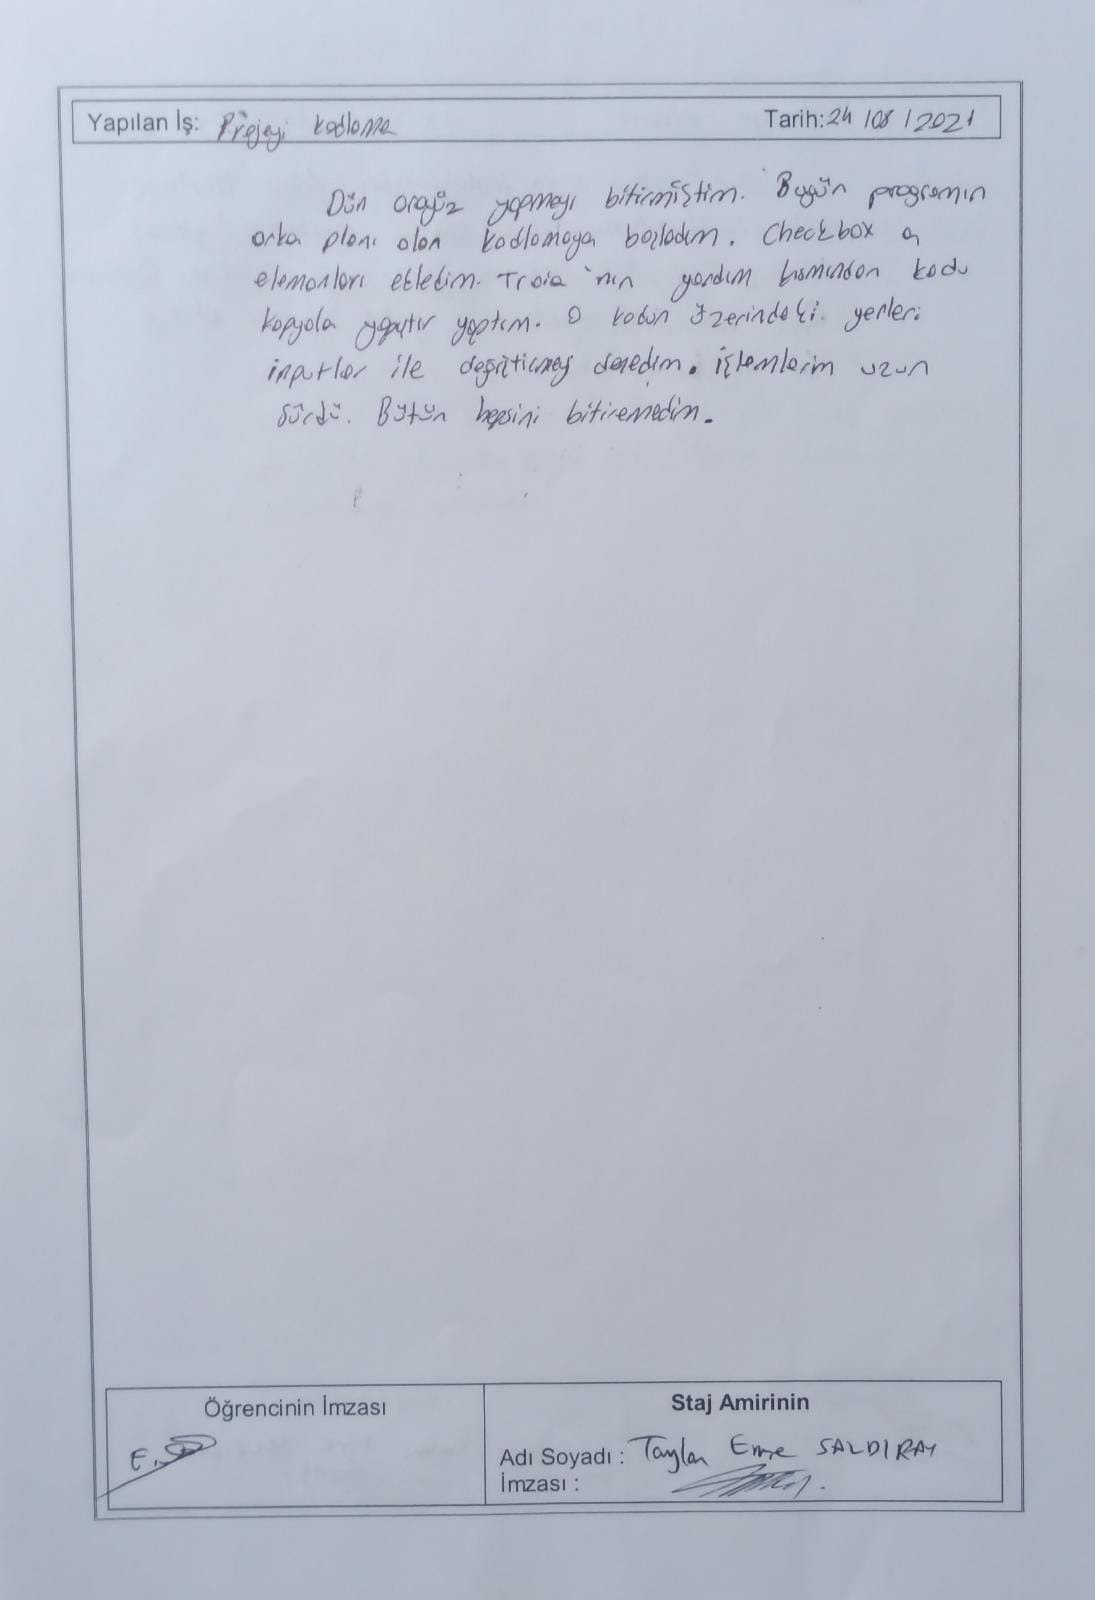 Yapılan İş: Projeyi kodlama
Tarih:24/08/2021
Dün arayüz yapmayı bitirmiştim. Bugün programın
arka planı olan kodlamaya başladım. Checkbox a
elemanları ekledim. Troia'nın yardım kısmından kodu
kopyala yapıştır yaptım. O kodun üzerindeki yerleri
inputlar ile değiştirmey denedim. İşlemlerim uzun
sürdü. Bütün hepsini bitiremedim.
Öğrencinin İmzası
Staj Amirinin
Adı Soyadı : Taylan Emre SALDIRAY
İmzası :